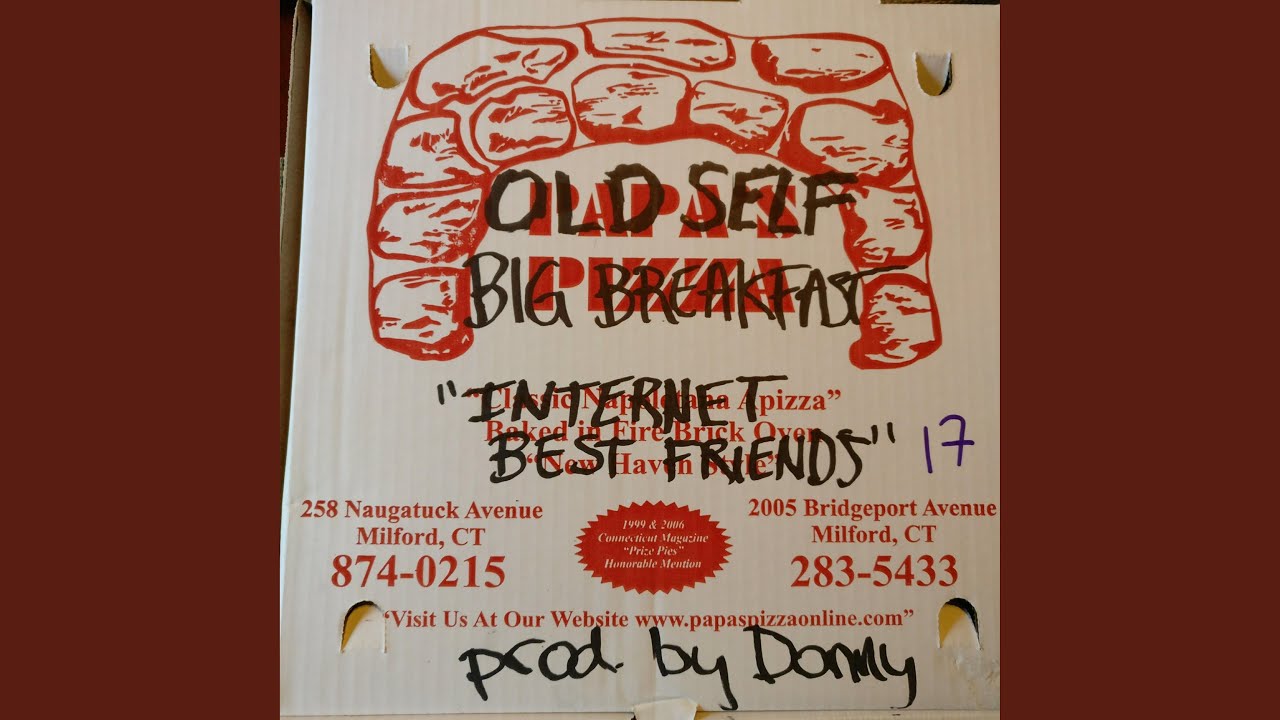 OLD SELF
PAPA'S
BIG BREAKFAST
PIZZA
"INTERNET
"Classic Napoletana Apizza"
Baked in Fire Brick Oven
BEST FRIENDS" 17
"New Haven Style"
258 Naugatuck Avenue
Milford, CT
874-0215
1999 & 2006
Connecticut Magazine
"Prize Pies"
Honorable Mention
2005 Bridgeport Avenue
Milford, CT
283-5433
"Visit Us At Our Website www.papaspizzaonline.com"
prod. by Donny